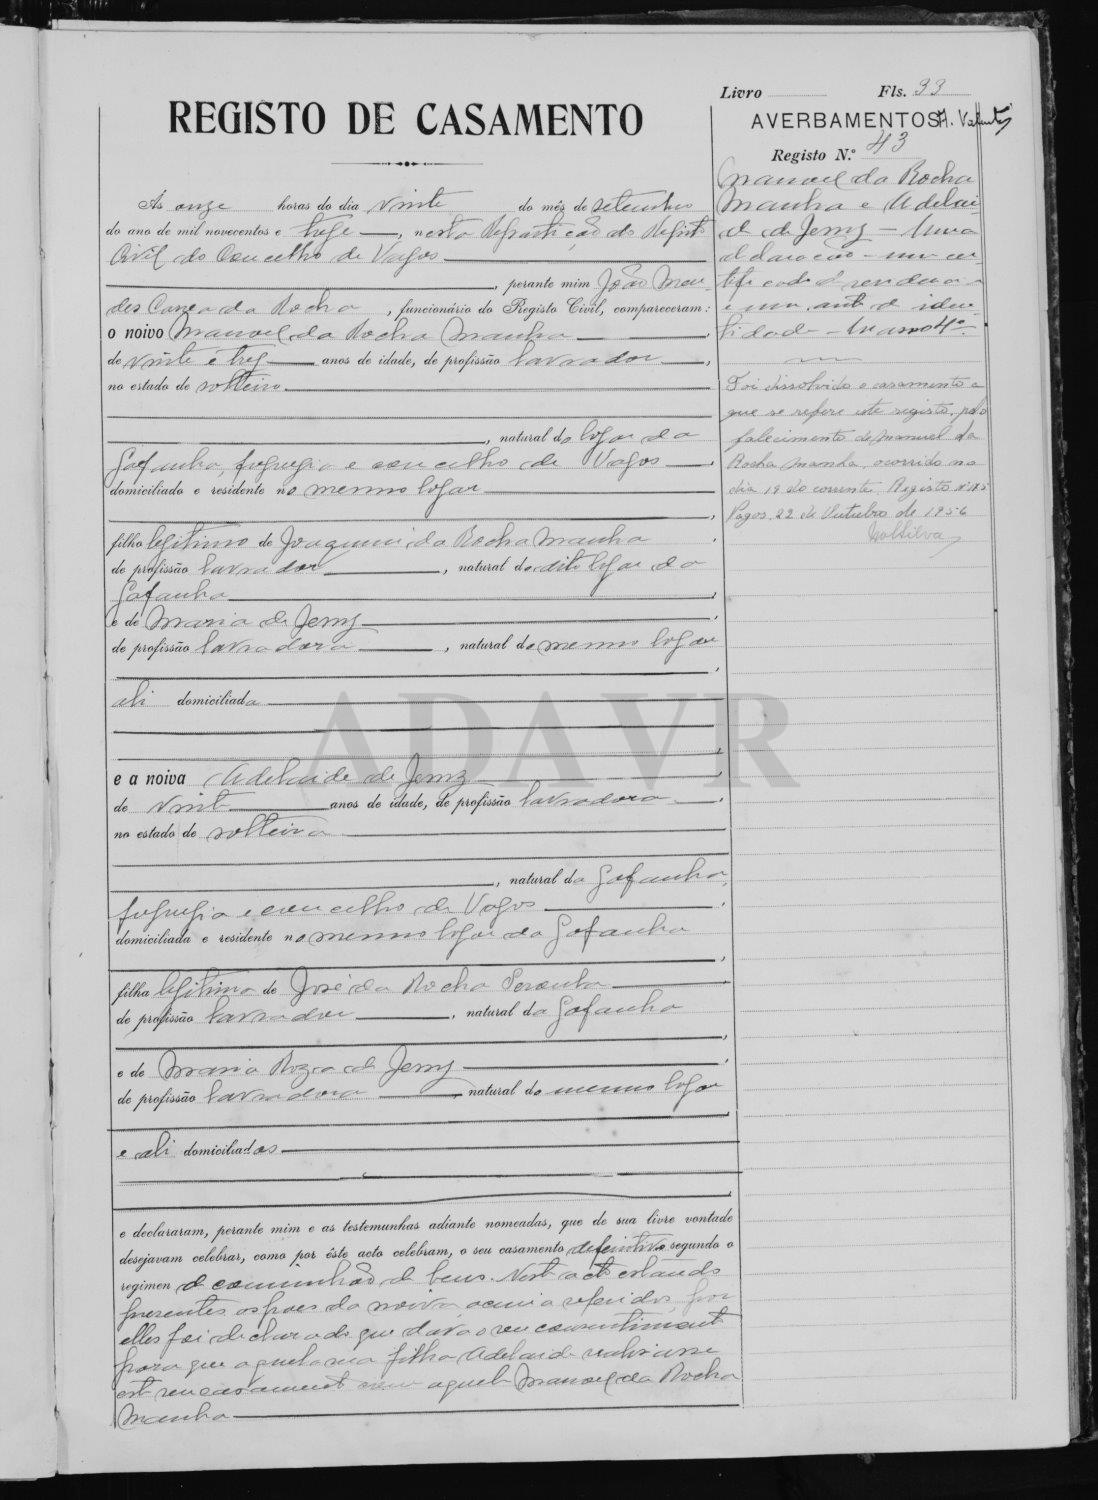 Livro Fls. 33
REGISTO DE CASAMENTO
AVERBAMENTOS
Registo N.º 43
Ás onze horas do dia vinte do mês de setembro
do ano de mil novecentos e treze, nesta Repartição do Registo
Civil do Concelho de Vagos
, perante mim João Men-
des Correa da Rocha, funcionário do Registo Civil, compareceram:
o noivo Manoel da Rocha Manha,
de vinte e trez anos de idade, de profissão lavrador,
no estado de solteiro
, natural do logar da
Gafanha, freguezia e concelho de Vagos,
domiciliado e residente no mesmo logar
,
filho legitimo de Joaquim da Rocha Manha,
de profissão lavrador, natural do dito logar da
Gafanha,
e de Maria de Jesus,
de profissão lavradora, natural do mesmo logar
,
ali domiciliada
,
e a noiva Adelaide de Jesus,
de vinte anos de idade, de profissão lavradora,
no estado de solteira
, natural da Gafanha,
freguezia e concelho de Vagos,
domiciliada e residente no mesmo logar da Gafanha
,
filha legitima de José da Rocha,
de profissão lavrador, natural da Gafanha
,
e de Maria Roza de Jesus,
de profissão lavradora natural do mesmo logar
e ali domiciliados
,
e declararam, perante mim e as testemunhas adiante nomeadas, que de sua livre vontade
desejavam celebrar, como por êste acto celebram, o seu casamento definitivo segundo o
regimen de comunhão de bens. Neste acto estando
presentes os paes da noiva acima referidos, por
elles foi declarado que davam o seu consentimento
para que aquela sua filha Adelaide realisasse
este seu casamento com aquele Manoel da Rocha
Manha
Manoel da Rocha
Manha e Adelai-
de de Jesus — Uma
declaração — um cer-
tificado de residencia
e um auto de iden-
tidade — Maço 4º
Foi dissolvido o casamento a
que se refere este registo, pelo
falecimento de Manuel da
Rocha Manha, ocorrido no
dia 19 do corrente. Registo nº
Vagos, 22 de Outubro de 1956
ADAVR